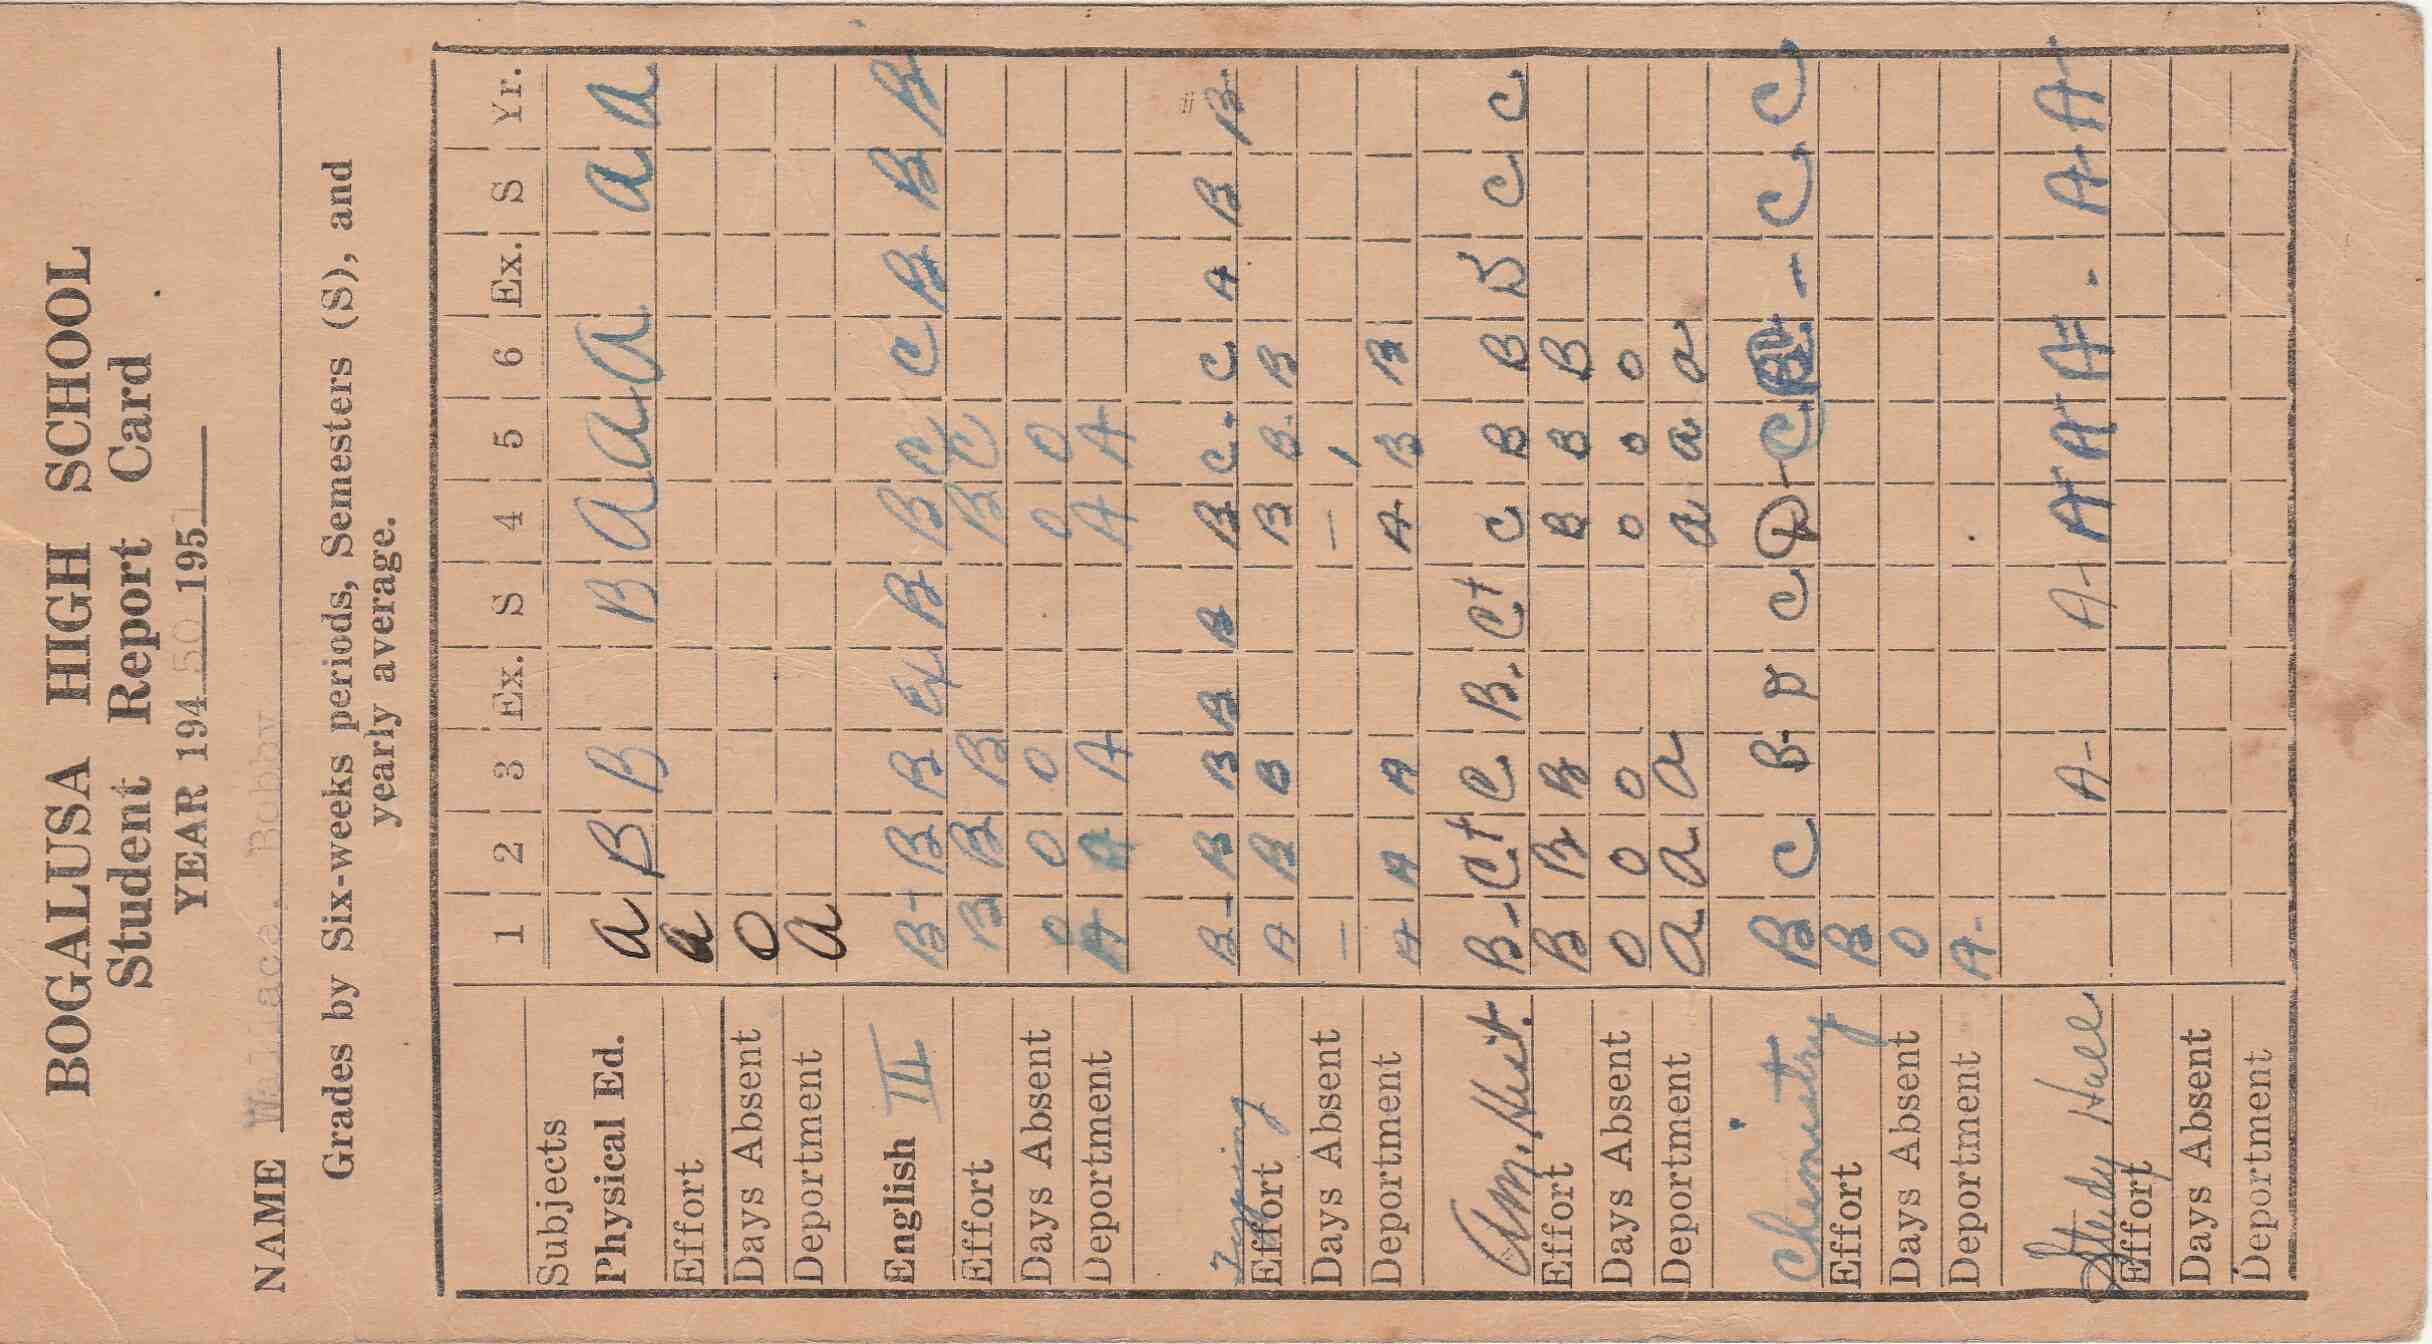 BOGALUSA HIGH SCHOOL
Student Report Card
YEAR 194 50 195 1
NAME Wallace, Bobby
Grades by Six-weeks periods, Semesters (S), and
yearly average.
Subjects 1 2 3 Ex. S 4 5 6 Ex. S Yr.
Physical Ed. a B B B a a a a a
Effort a
Days Absent 0
Deportment a
English III B- B B Ex B B C C B B B
Effort B B B B C
Days Absent 0 0 0 0 0
Deportment A A A A A
Typing B- B B B B B C C A B B
Effort A B B B B B
Days Absent - - 1
Deportment A A A A B B
Am. Hist. B- C+ C B- C+ C B B B C C
Effort B B B B B B
Days Absent 0 0 0 0 0 0
Deportment a a a a a a
Chemistry B C B- D C D- C - C C
Effort B
Days Absent 0
Deportment A-
Study Hall A- A- A- A A- - A- A-
Effort
Days Absent
Deportment